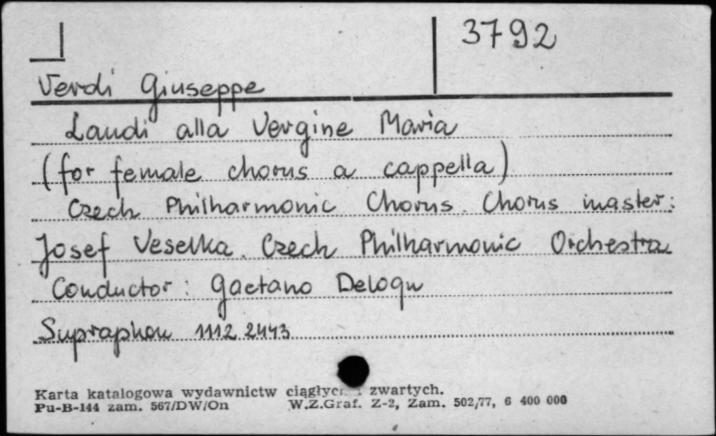 3792
Verdi Giuseppe
Laudi alla Vergine Maria
(for female chorus a cappella)
Czech Philharmonic Chorus. Chorus master:
Josef Veselka. Czech Philharmonic Orchestra
Conductor: Gaetano Delogu
Supraphon 1112 2443
Karta katalogowa wydawnictw ciągłych i zwartych.
Pu-B-144 zam. 567/DW/On W.Z.Graf. Z-2, Zam. 502/77, 6 400 000